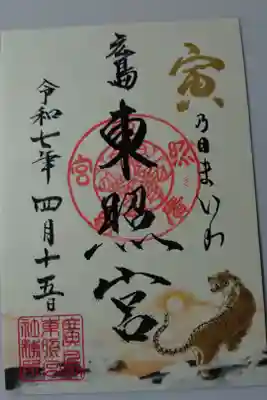 寅
乃日まいり
廣島
東照宮
令和七年 四月十五日
廣島
東照宮
社務所